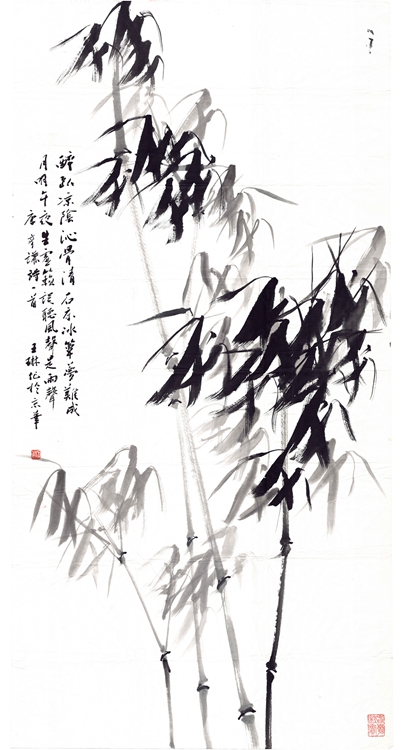 醉卧凉陰沁骨清石床冰簟夢難成
月明午夜生虚籁误聽風聲是雨聲
唐彦謙詩一首
王琳作於京華